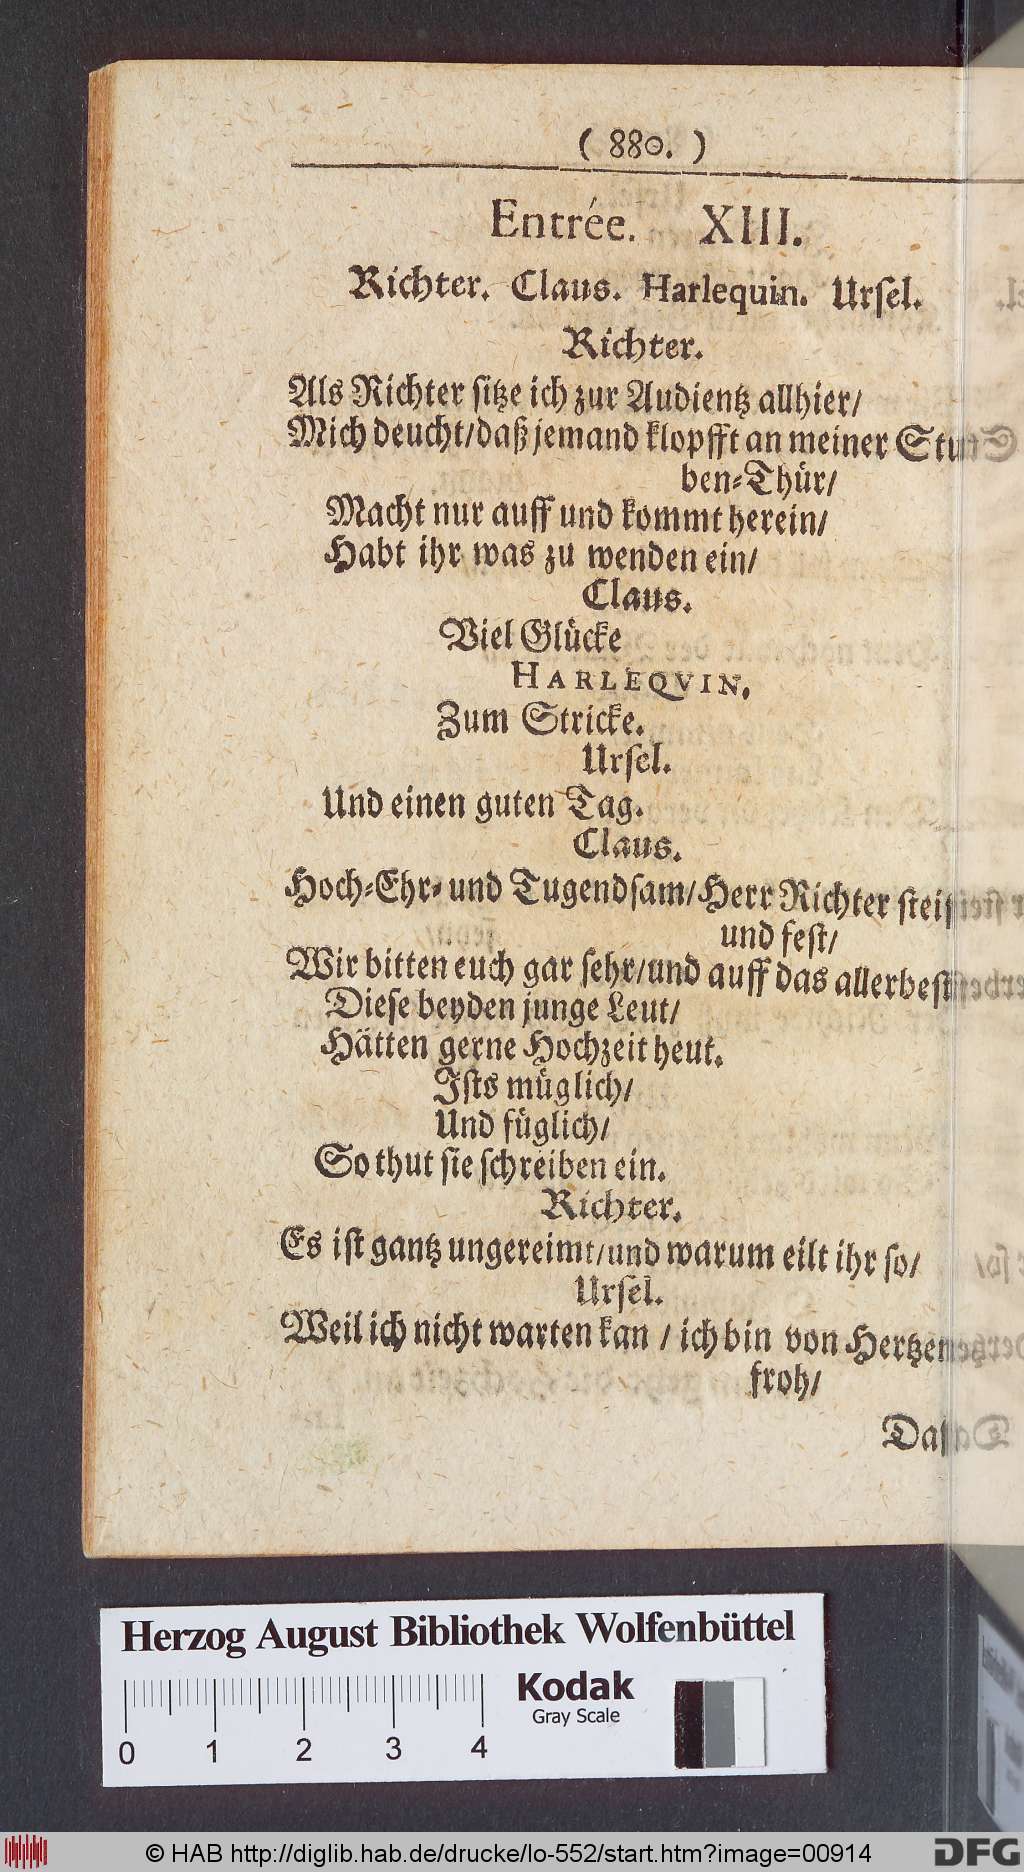 ( 880. )
Entrée. XIII.
Richter. Claus. Harlequin. Urſel.
Richter.
Als Richter ſitze ich zur Audientz allhier/
Mich deucht/daß jemand klopfft an meiner Stu-
ben-Thür/
Macht nur auff und kommt herein/
Habt ihr was zu wenden ein/
Claus.
Viel Glücke
HARLEQVIN.
Zum Stricke.
Urſel.
Und einen guten Tag.
Claus.
Hoch-Ehr- und Tugendſam/Herr Richter ſteif
und feſt/
Wir bitten euch gar ſehr/und auff das allerbeſt
Dieſe beyden junge Leut/
Hätten gerne Hochzeit heut.
Iſts müglich/
Und füglich/
So thut ſie ſchreiben ein.
Richter.
Es iſt gantz ungereimt/und warum eilt ihr ſo/
Urſel.
Weil ich nicht warten kan / ich bin von Hertzen
froh/
Daß
Herzog August Bibliothek Wolfenbüttel
Kodak
Gray Scale
0 1 2 3 4
© HAB http://diglib.hab.de/drucke/lo-552/start.htm?image=00914
DFG